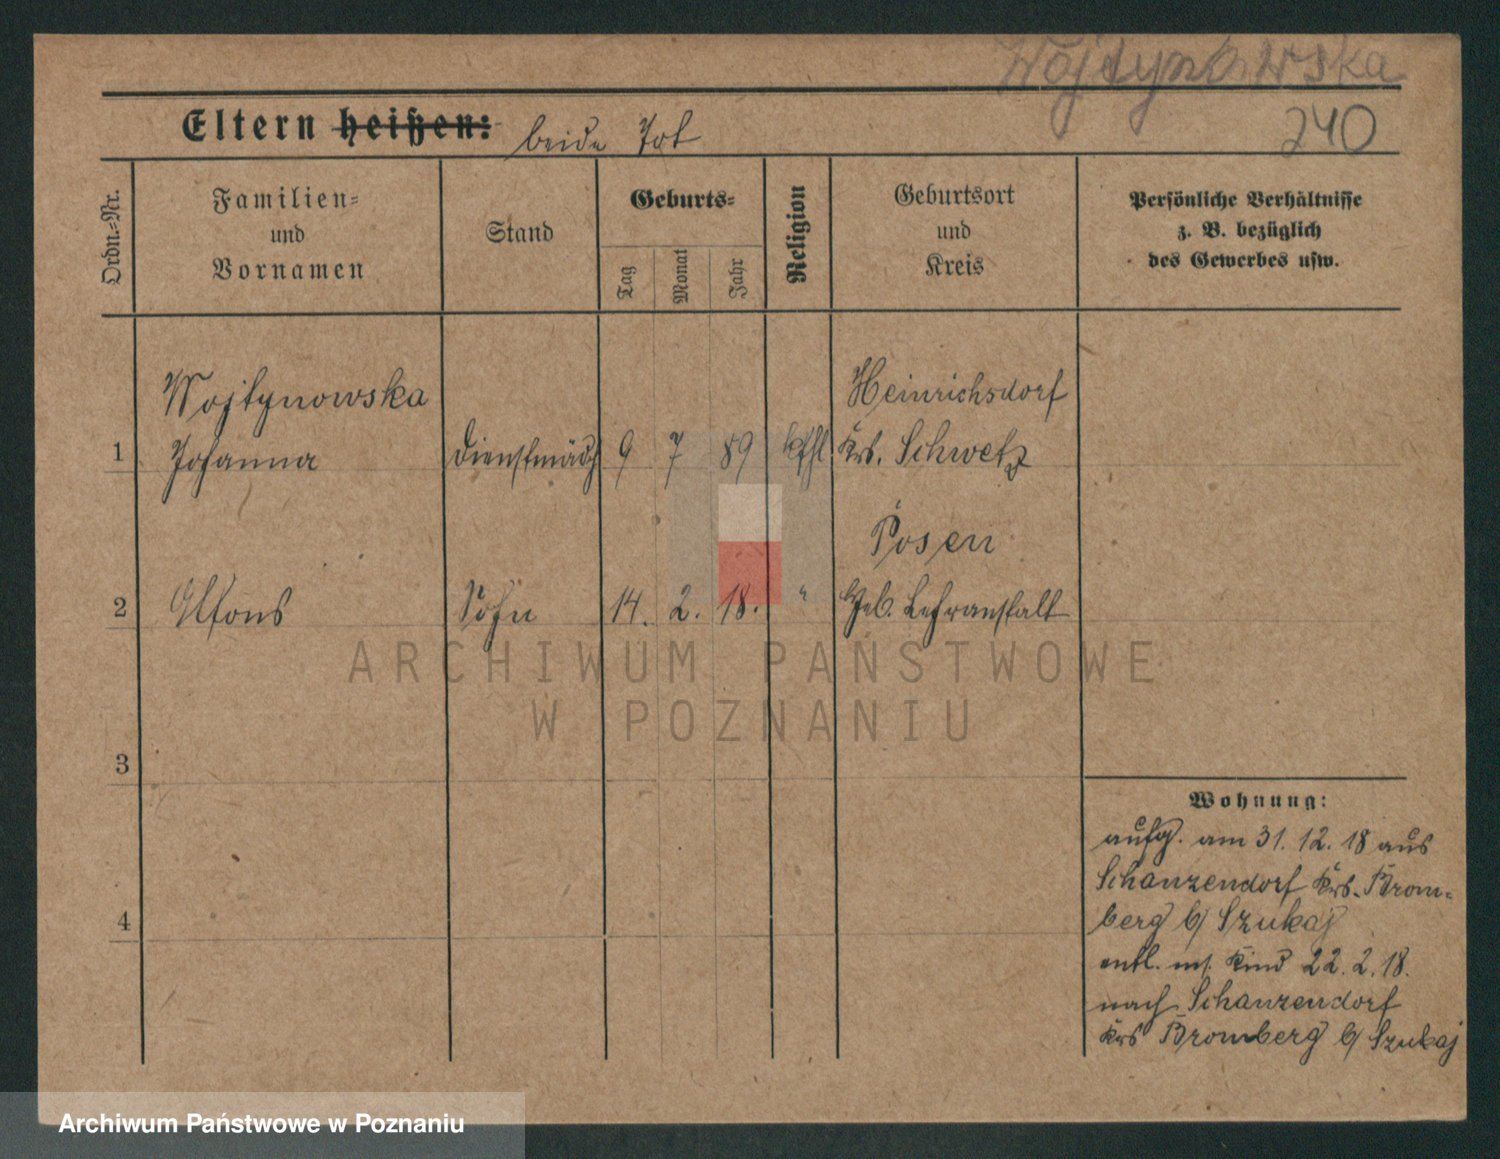 Wojtynowska
240
Eltern heißen: beide Tot
Ordn.-Nr.
Familien-
und
Vornamen
Stand
Geburts-
Tag
Monat
Jahr
Religion
Geburtsort
und
Kreis
Persönliche Verhältnisse
z. B. bezüglich
des Gewerbes usw.
Wojtynowska Heinrichsdorf
1 Johanna Dienstmädch 9 7 89 kthl Krs. Schwetz
Posen
2 Alfons Sohn 14. 2. 18. " Heb. Lehranstalt
ARCHIWUM PAŃSTWOWE
W POZNANIU
3
Wohnung:
aufg. am 31. 12. 18 aus
Schanzendorf Krs. Brom-
berg b/ Szukaj
4
entl. mt. Kind 22. 2. 18.
nach Schanzendorf
Krs Bromberg b/ Szukaj
Archiwum Państwowe w Poznaniu